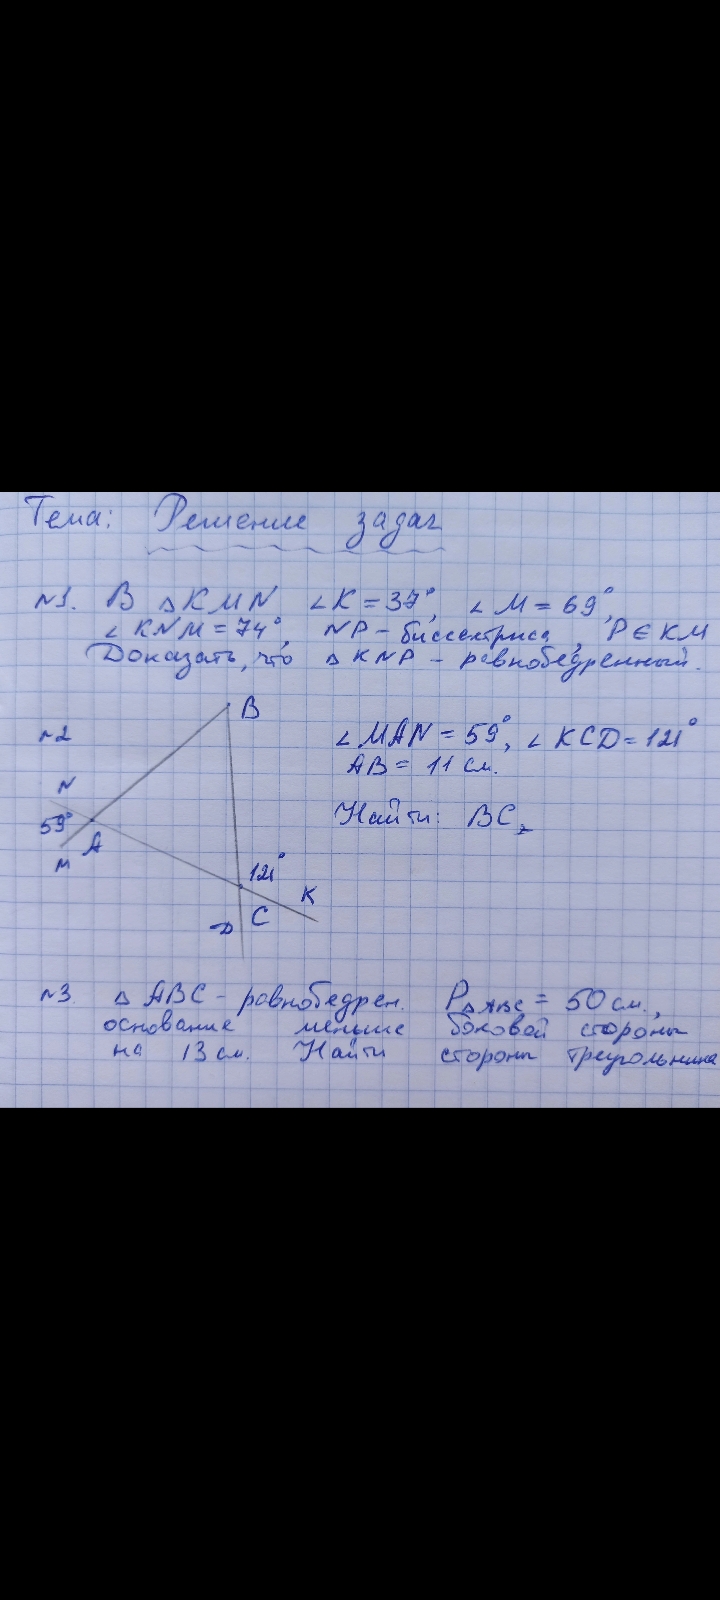 Тема: Решение задач
№1. В △KMN ∠K = 37°, ∠M = 69°,
∠KNM = 74°, NP - биссектриса, P ∈ KM
Доказать, что △KNP - равнобедренный.
B
№2
∠MAN = 59°, ∠KCD = 121°
AB = 11 см.
N
Найти: BC.
59°
A
M
121°
K
D
C
№3. △ABC - равнобедрен. P△ABC = 50 см.,
основание меньше боковой стороны
на 13 см. Найти стороны треугольника